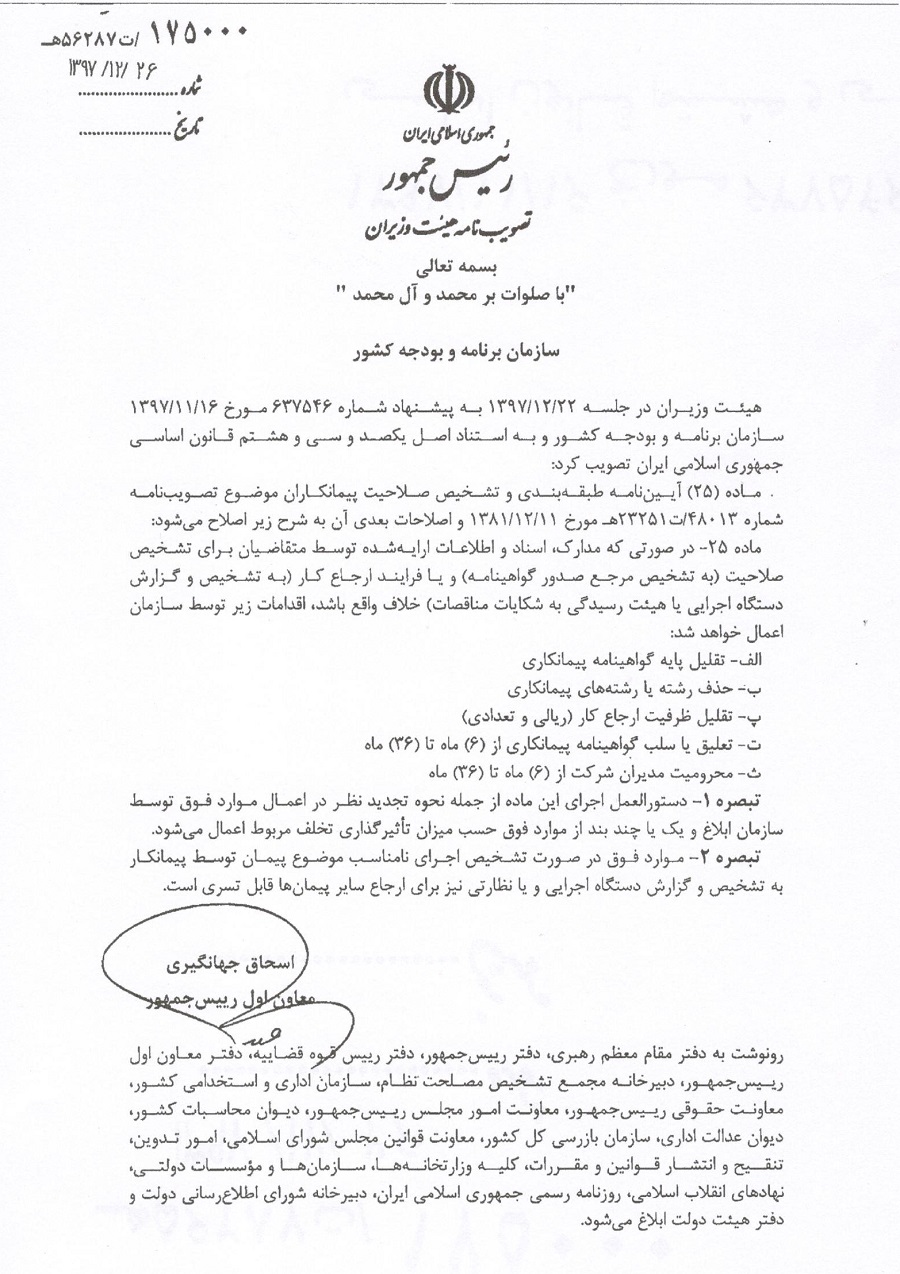 ۱۷۵۰۰۰ /ت۵۶۲۸۷هـ
۱۳۹۷/۱۲/۲۶
شماره
تاریخ
جمهوری اسلامی ایران
رئیس جمهور
تصویب نامه هیئت وزیران
بسمه تعالی
"با صلوات بر محمد و آل محمد "
سازمان برنامه و بودجه کشور
هیئت وزیران در جلسه ۱۳۹۷/۱۲/۲۲ به پیشنهاد شماره ۶۳۷۵۴۶ مورخ ۱۳۹۷/۱۱/۱۶
سازمان برنامه و بودجه کشور و به استناد اصل یکصد و سی و هشتم قانون اساسی
جمهوری اسلامی ایران تصویب کرد:
ماده (۲۵) آیین‌نامه طبقه‌بندی و تشخیص صلاحیت پیمانکاران موضوع تصویب‌نامه
شماره ۴۸۰۱۳/ت۲۳۲۵۱هـ مورخ ۱۳۸۱/۱۲/۱۱ و اصلاحات بعدی آن به شرح زیر اصلاح می‌شود:
ماده ۲۵- در صورتی که مدارک، اسناد و اطلاعات ارایه‌شده توسط متقاضیان برای تشخیص
صلاحیت (به تشخیص مرجع صدور گواهینامه) و یا فرایند ارجاع کار (به تشخیص و گزارش
دستگاه اجرایی یا هیئت رسیدگی به شکایات مناقصات) خلاف واقع باشد، اقدامات زیر توسط سازمان
اعمال خواهد شد:
الف- تقلیل پایه گواهینامه پیمانکاری
ب- حذف رشته یا رشته‌های پیمانکاری
پ- تقلیل ظرفیت ارجاع کار (ریالی و تعدادی)
ت- تعلیق یا سلب گواهینامه پیمانکاری از (۶) ماه تا (۳۶) ماه
ث- محرومیت مدیران شرکت از (۶) ماه تا (۳۶) ماه
تبصره ۱- دستورالعمل اجرای این ماده از جمله نحوه تجدید نظر در اعمال موارد فوق توسط
سازمان ابلاغ و یک یا چند بند از موارد فوق حسب میزان تأثیرگذاری تخلف مربوط اعمال می‌شود.
تبصره ۲- موارد فوق در صورت تشخیص اجرای نامناسب موضوع پیمان توسط پیمانکار
به تشخیص و گزارش دستگاه اجرایی و یا نظارتی نیز برای ارجاع سایر پیمان‌ها قابل تسری است.
اسحاق جهانگیری
معاون اول رییس‌جمهور
رونوشت به دفتر مقام معظم رهبری، دفتر رییس‌جمهور، دفتر رییس قوه قضاییه، دفتر معاون اول
رییس‌جمهور، دبیرخانه مجمع تشخیص مصلحت نظام، سازمان اداری و استخدامی کشور،
معاونت حقوقی رییس‌جمهور، معاونت امور مجلس رییس‌جمهور، دیوان محاسبات کشور،
دیوان عدالت اداری، سازمان بازرسی کل کشور، معاونت قوانین مجلس شورای اسلامی، امور تدوین،
تنقیح و انتشار قوانین و مقررات، کلیه وزارتخانه‌ها، سازمان‌ها و مؤسسات دولتی،
نهادهای انقلاب اسلامی، روزنامه رسمی جمهوری اسلامی ایران، دبیرخانه شورای اطلاع‌رسانی دولت و
دفتر هیئت دولت ابلاغ می‌شود.